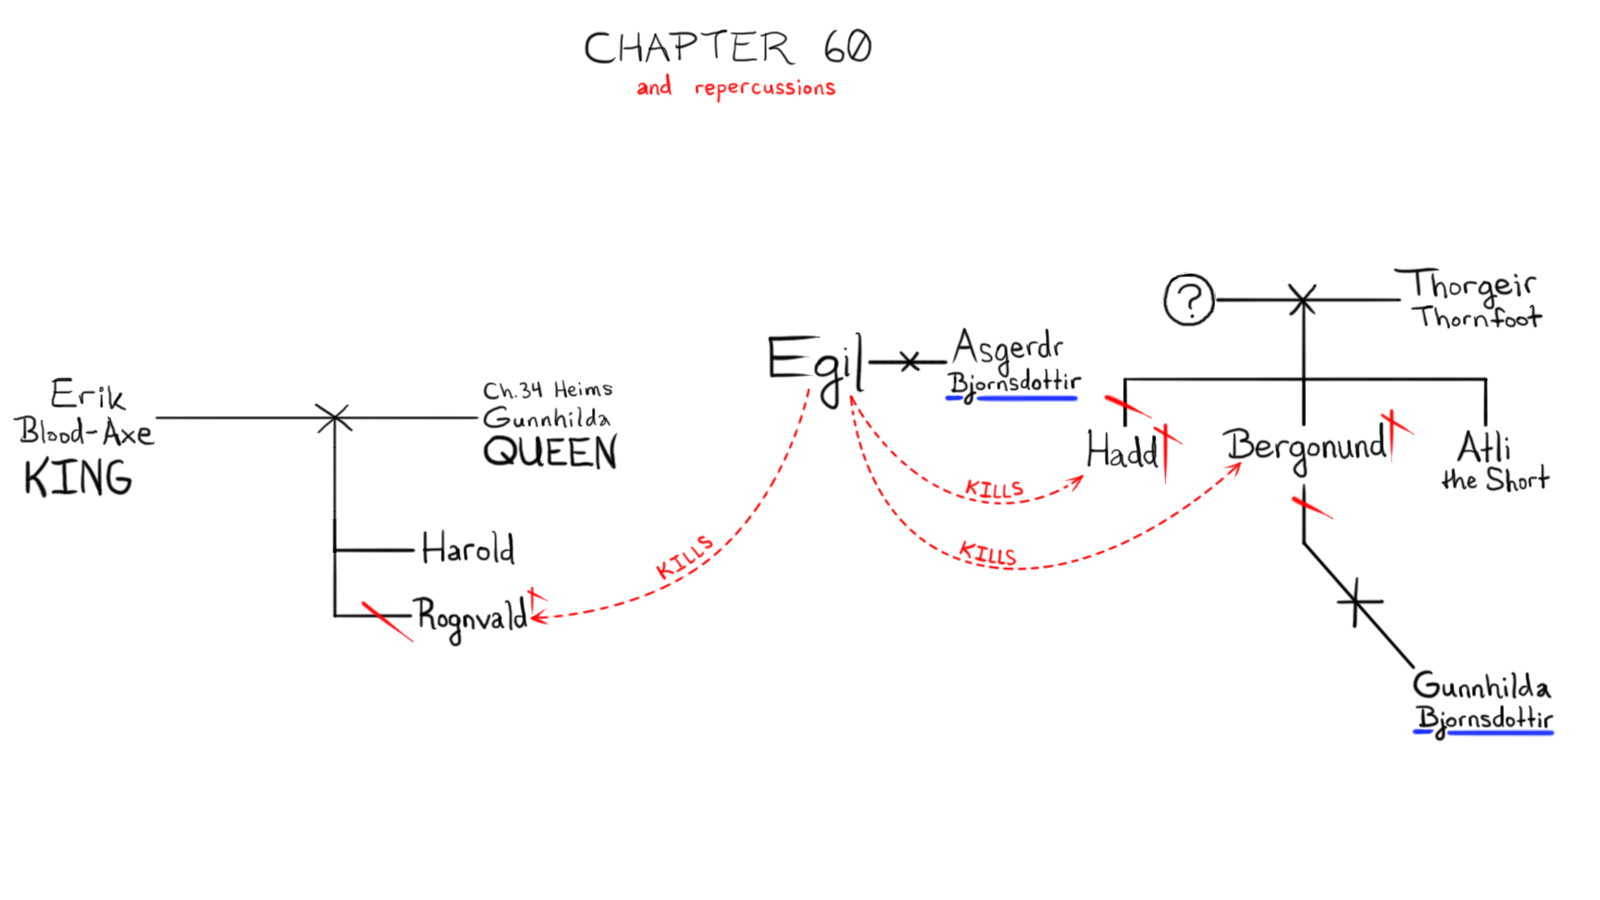 CHAPTER 60
and repercussions
Erik
Blood-Axe
KING
Ch.34 Heims
Gunnhilda
QUEEN
Harold
Rognvald
KILLS
Egil
Asgerdr
Bjornsdottir
KILLS
KILLS
?
Thorgeir
Thornfoot
Hadd
Bergonund
Atli
the Short
Gunnhilda
Bjornsdottir